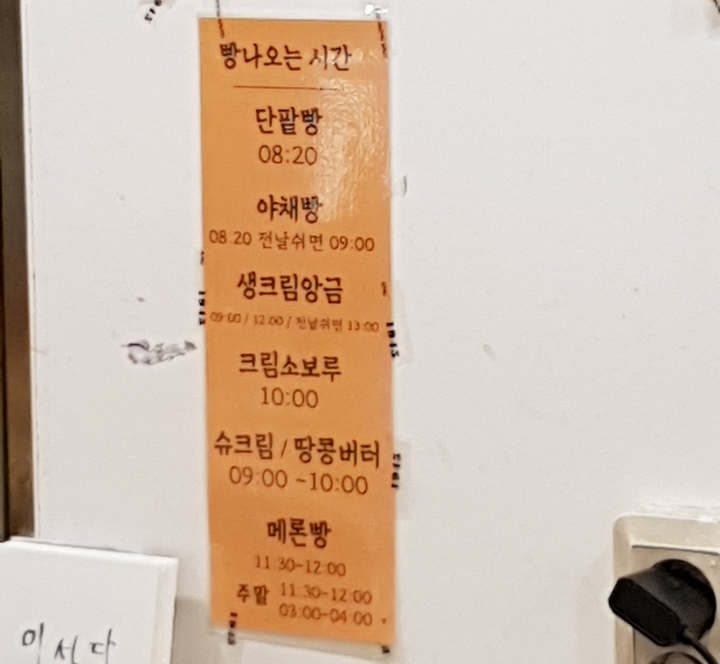 빵나오는 시간
단팥빵
08:20
야채빵
08.20 전날쉬면 09:00
생크림앙금
09:00 / 12:00 / 전날쉬면 13:00
크림소보루
10:00
슈크림 / 땅콩버터
09:00 ~10:00
메론빵
11:30-12:00
주말 11:30-12:00
03:00-04:00